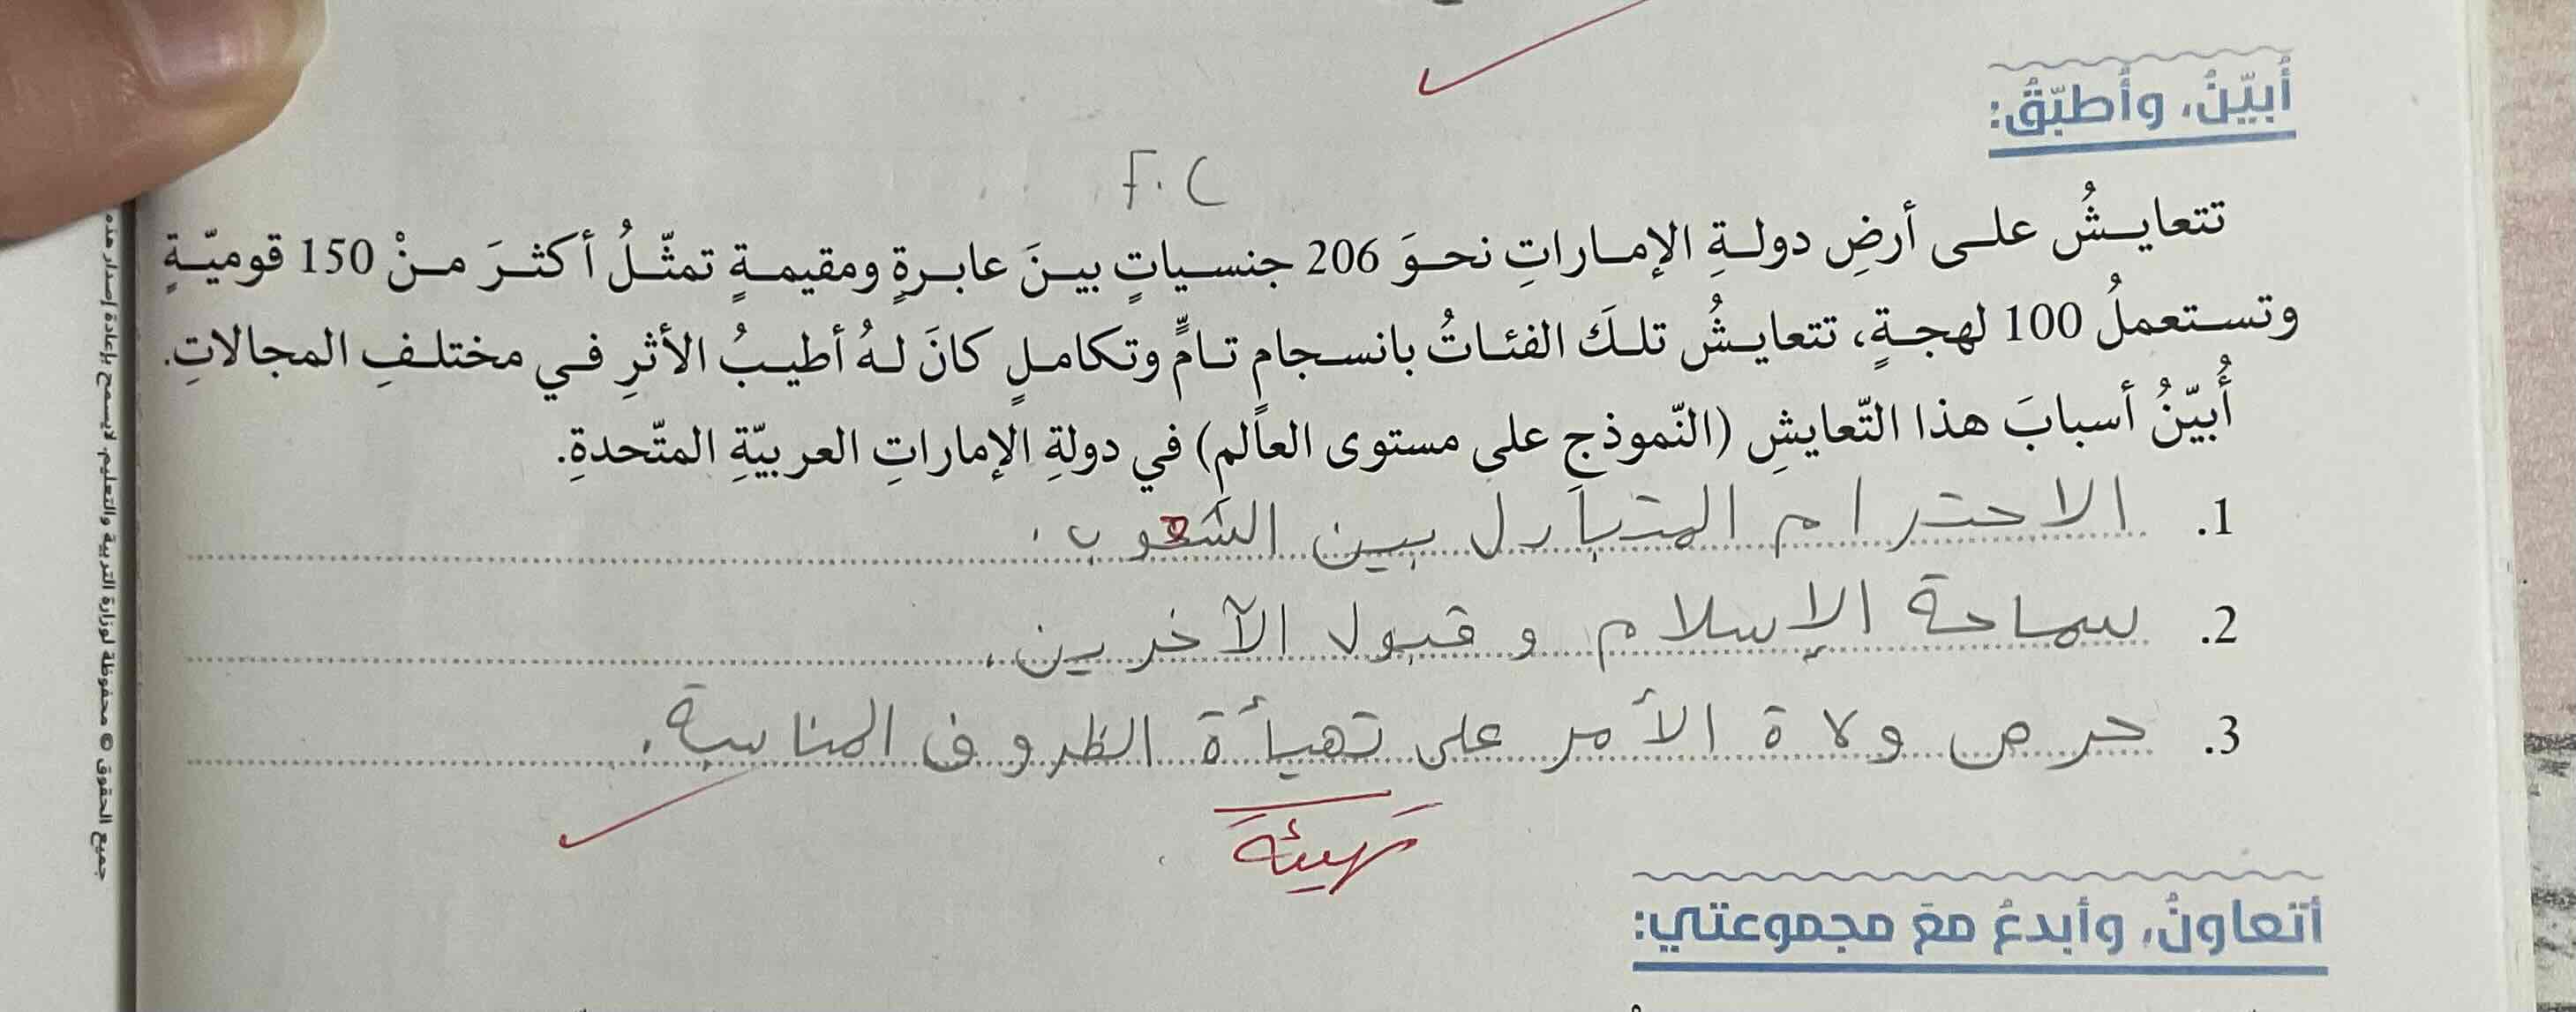 أُبيّنُ، وأُطبّقُ:
F.C
تتعايشُ على أرضِ دولةِ الإماراتِ نحوَ 206 جنسياتٍ بينَ عابرةٍ ومقيمةٍ تمثّلُ أكثرَ منْ 150 قوميّةٍ
وتستعملُ 100 لهجةٍ، تتعايشُ تلكَ الفئاتُ بانسجامٍ تامٍّ وتكاملٍ كانَ لهُ أطيبُ الأثرِ في مختلفِ المجالاتِ.
أُبيّنُ أسبابَ هذا التّعايشِ (النّموذجِ على مستوى العالمِ) في دولةِ الإماراتِ العربيّةِ المتّحدةِ.
1. الاحترام المتبادل بين الشعوب.
2. سماحة الإسلام و قبول الآخرين.
3. حرص ولاة الأمر على تهيأة الظروف المناسبة.
تهيئة
أتعاونُ، وأبدعُ معَ مجموعتي:
جميع الحقوق © محفوظة لوزارة التربية والتعليم. لا يسمح بإعادة إصدار هذه